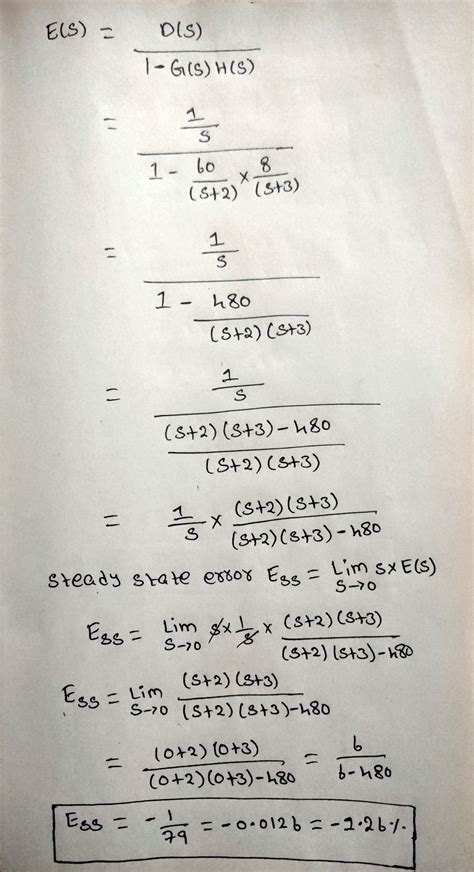 E(S) = D(S) / 1 - G(S) H(S)
= 1/S / 1 - 60/(S+2) × 8/(S+3)
= 1/S / 1 - 480/(S+2)(S+3)
= 1/S / (S+2)(S+3) - 480/(S+2)(S+3)
= 1/S × (S+2)(S+3)/(S+2)(S+3) - 480
Steady state error Ess = Lim S→0 S×E(S)
Ess = Lim S→0 S × 1/S × (S+2)(S+3)/(S+2)(S+3)-480
Ess = Lim S→0 (S+2)(S+3)/(S+2)(S+3)-480
= (0+2)(0+3)/(0+2)(0+3)-480 = 6/6-480
Ess = -1/79 = -0.0126 = -1.26%.